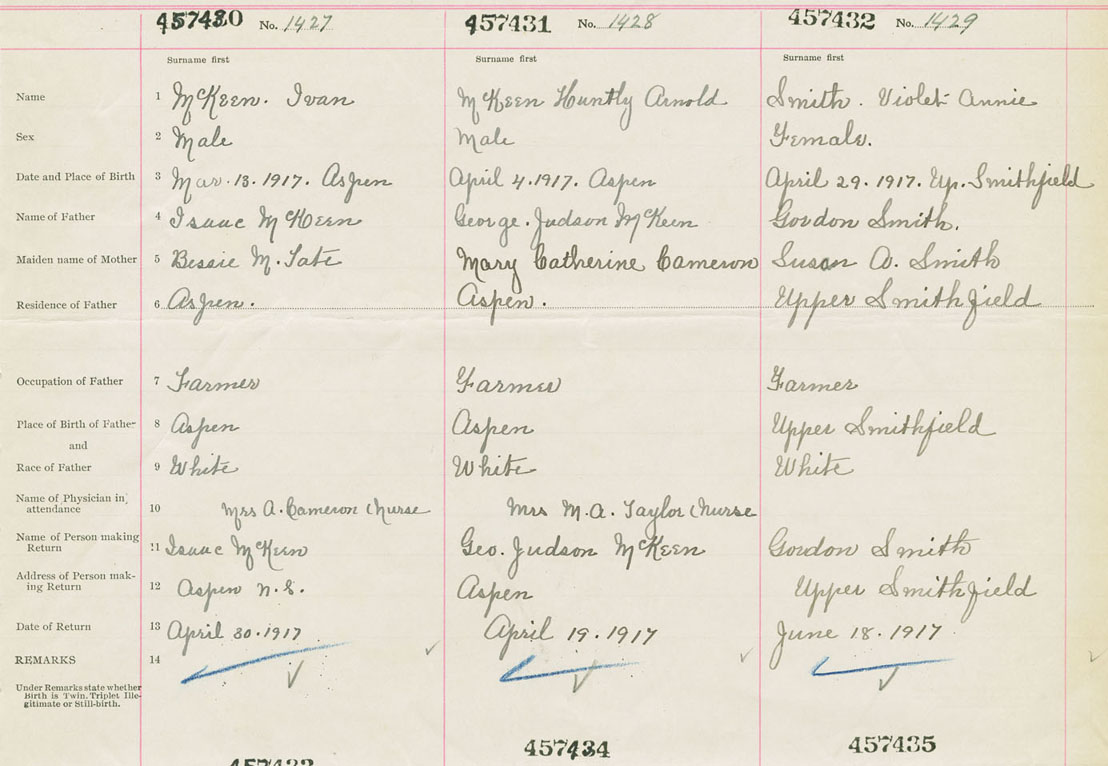 457430 No. 1427 457431 No. 1428 457432 No. 1429
Surname first Surname first Surname first
Name 1 McKeen. Ivan McKeen Huntly Arnold Smith. Violet Annie
Sex 2 Male Male Female.
Date and Place of Birth 3 Mar. 13. 1917. Aspen April 4. 1917. Aspen April 29. 1917. Up. Smithfield
Name of Father 4 Isaac McKeen George. Judson McKeen Gordon Smith.
Maiden name of Mother 5 Bessie M. Tate Mary Catherine Cameron Susan O. Smith
Residence of Father 6 Aspen. Aspen. Upper Smithfield
Occupation of Father 7 Farmer Farmer Farmer
Place of Birth of Father 8 Aspen Aspen Upper Smithfield
and
Race of Father 9 White White White
Name of Physician in
attendance 10 Mrs A. Cameron (Nurse Mrs M.A. Taylor (Nurse
Name of Person making
Return 11 Isaac McKeen Geo. Judson McKeen Gordon Smith
Address of Person mak-
ing Return 12 Aspen N.S. Aspen Upper Smithfield
Date of Return 13 April 30. 1917 April 19. 1917 June 18. 1917
REMARKS 14
Under Remarks state whether
Birth is Twin. Triplet Ille-
gitimate or Still-birth.
457433 457434 457435